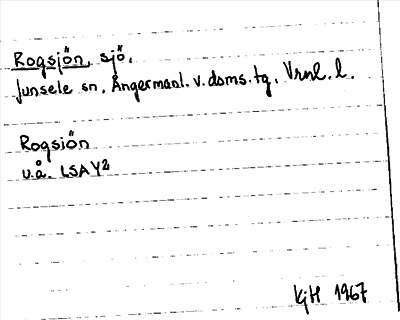 Rogsjön, sjö.
Junsele sn, Ångermanl. v. doms. tg, Vrnl. l.
Rogsiön
u.å. LSA Y2
KjH 1967